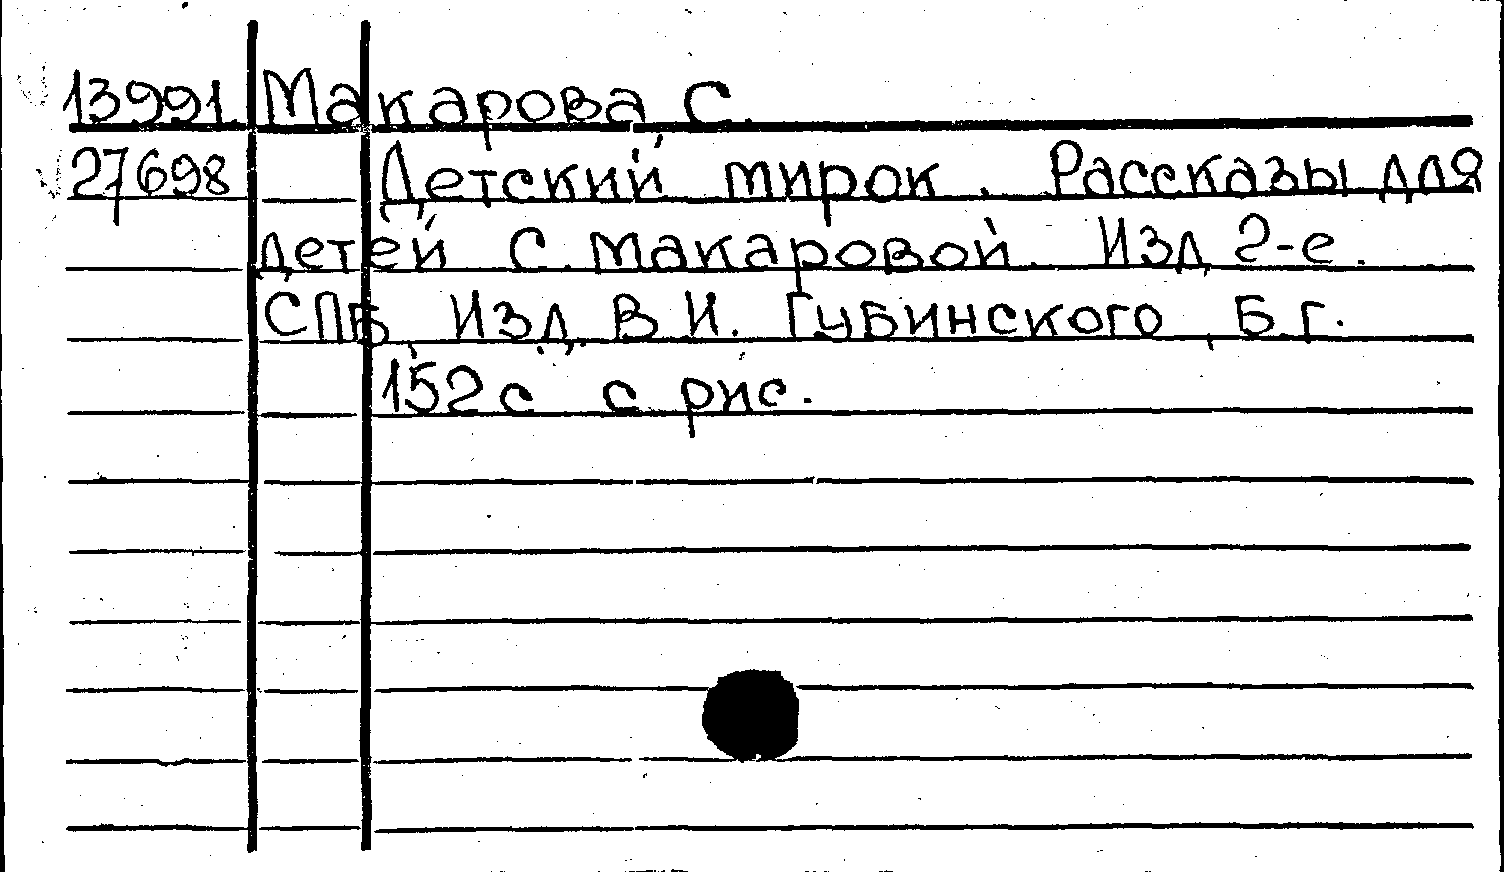 13991. Макарова, С.
27698 Детский мирок. Рассказы для
детей С. Макаровой. Изд. 2-е.
СПБ, Изд. В. И. Губинского, Б. г.
152 с. с рис.